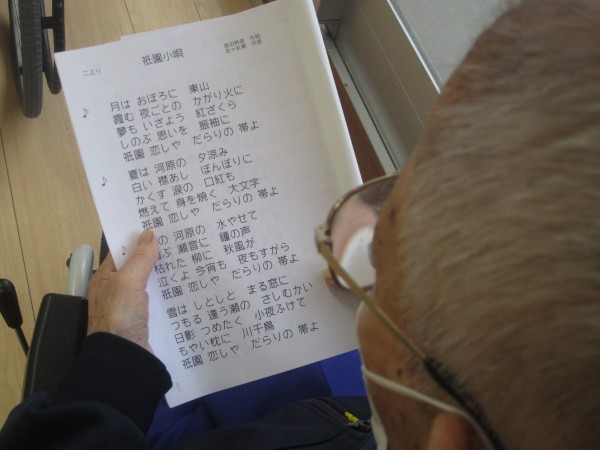 祇園小唄
長田幹彦 作詞
佐々紅華 作曲
二上り
月は おぼろに 東山
霞む 夜ごとの かがり火に
夢も いざよう 紅ざくら
しのぶ 思いを 振袖に
祇園 恋しや だらりの 帯よ
夏は 河原の 夕涼み
白い 襟あし ぼんぼりに
かくす 涙の 口紅も
燃えて 身を焼く 大文字
祇園 恋しや だらりの 帯よ
の 河原の 水やせて
ぶ 瀬音に 鐘の声
枯れた 柳に 秋風が
泣くよ 今宵も 夜もすがら
祇園 恋しや だらりの 帯よ
雪は しとしと まる窓に
つもる 逢う瀬の さしむかい
日影 つめたく 小夜ふけて
もやい枕に 川千鳥
祇園 恋しや だらりの 帯よ